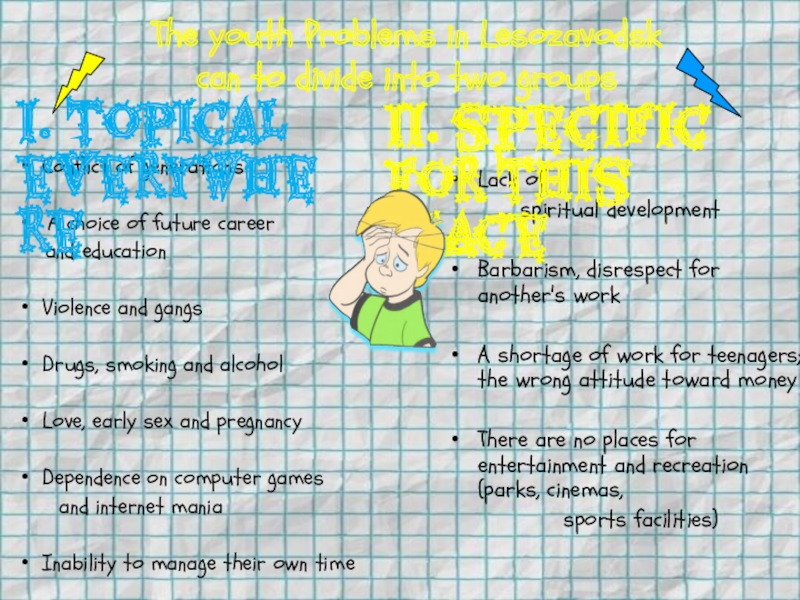 The youth Problems in Lesozavodsk
can to divide into two groups
I. TOPICAL
EVERYWHE
RE
Conflict of generations
A choice of future career
and education
• Violence and gangs
• Drugs, smoking and alcohol
• Love, early sex and pregnancy
• Dependence on computer games
and internet mania
• Inability to manage their own time
II. SPECIFIC
FOR THIS
• Lack of
spiritual development
• Barbarism, disrespect for
another's work
• A shortage of work for teenagers;
the wrong attitude toward money
• There are no places for
entertainment and recreation
(parks, cinemas,
sports facilities)